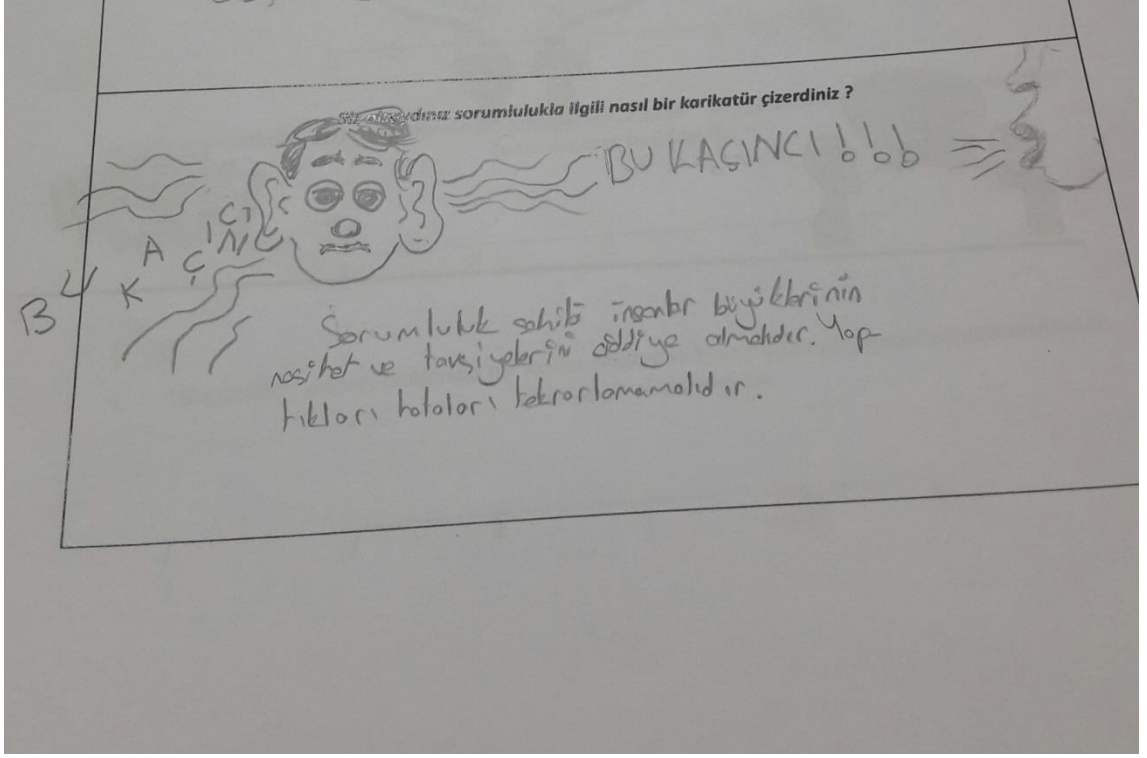 Siz olsaydınız sorumlulukla ilgili nasıl bir karikatür çizerdiniz ?
BU KAÇINCI!!!
BU KAÇINCI
Sorumluluk sahibi insanlar büyüklerinin
nasihet ve tavsiyelerini ciddiye almalıdır. Yap-
tıkları hataları tekrarlamamalıdır.